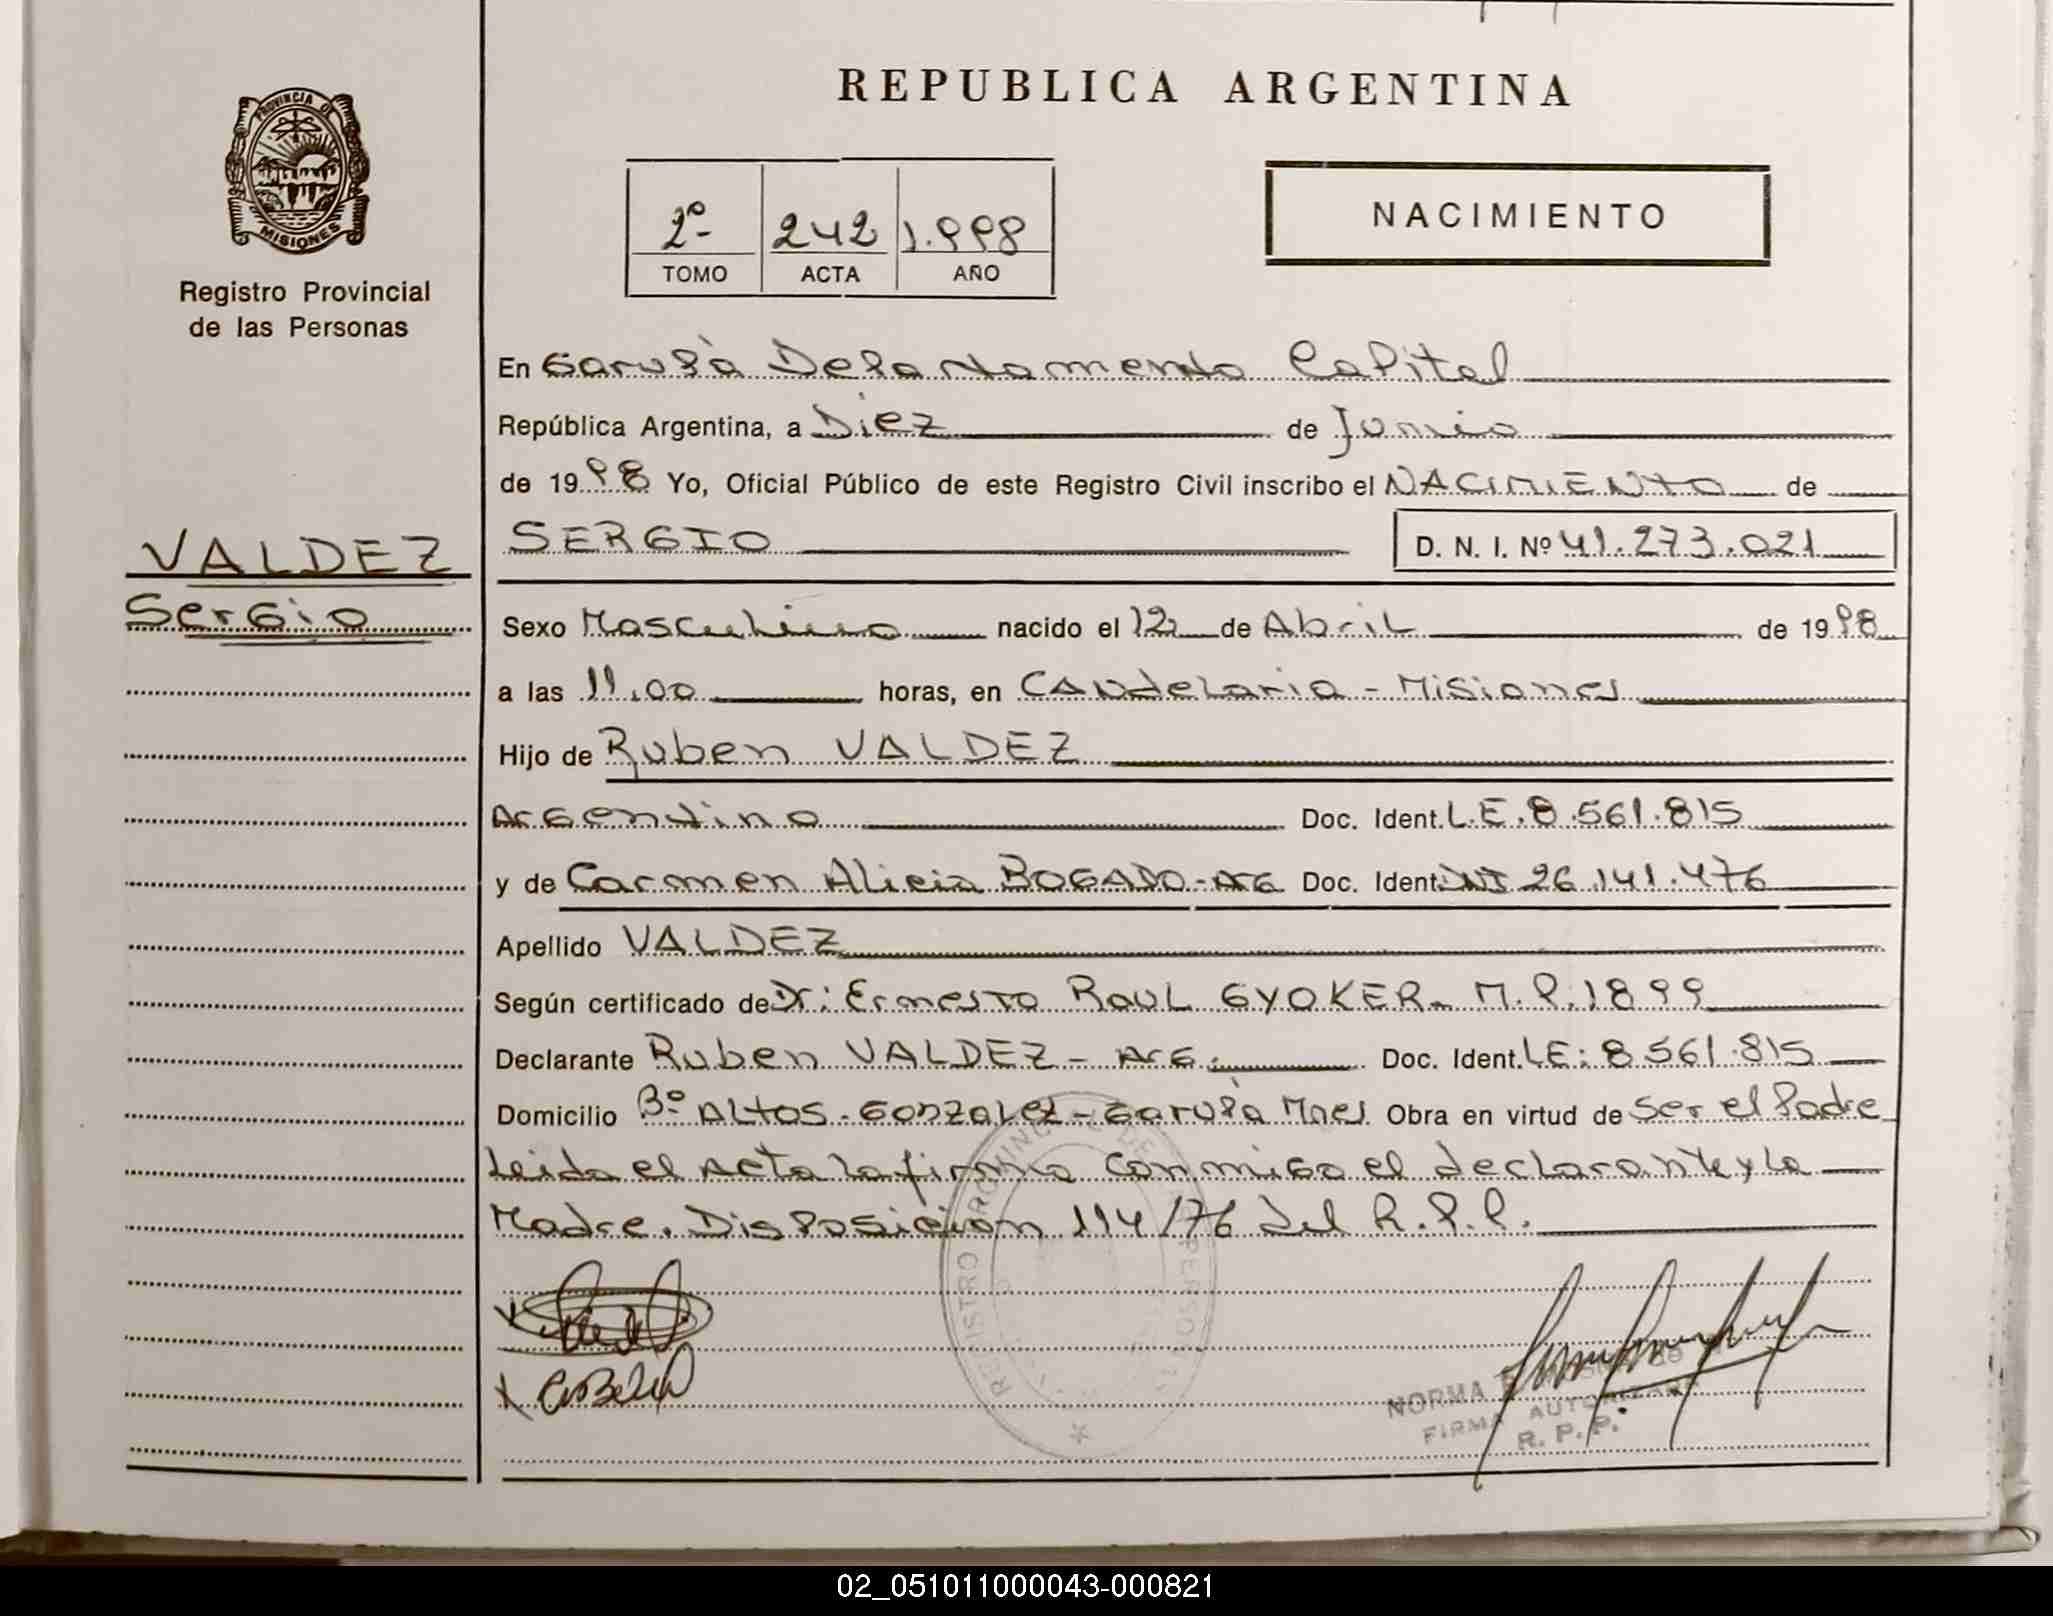 REPUBLICA ARGENTINA
PROVINCIA DE
MISIONES
Registro Provincial
de las Personas
2º 242 1.998
TOMO ACTA AÑO
NACIMIENTO
En Garupá Departamento Capital
República Argentina, a Diez de Junio
de 1998 Yo, Oficial Público de este Registro Civil inscribo el NACIMIENTO de
VALDEZ
Sergio
SERGIO D. N. I. Nº 41.273.021
Sexo Masculino nacido el 12 de Abril de 1998
a las 11,00 horas, en Candelaria - Misiones
Hijo de Ruben VALDEZ
Argentino Doc. Ident. L.E. 8.561.815
y de Carmen Alicia BOGADO - ARG Doc. Ident. DNI 26.141.476
Apellido VALDEZ
Según certificado de Dr: Ernesto Raul GYOKER - M.P. 1899
Declarante Ruben VALDEZ - Arg. Doc. Ident. LE: 8.561.815
Domicilio Bº ALTOS - Gonzalez - Garupá Mnes Obra en virtud de ser el Padre
Leida el Acta la firma conmigo el declarante y la
Madre. Disposicion 114/76 del R.P.P.
REGISTRO PROVINCIAL DE
NORMA
FIRMA AUTORIZADA
R. P. P.
02_051011000043-000821